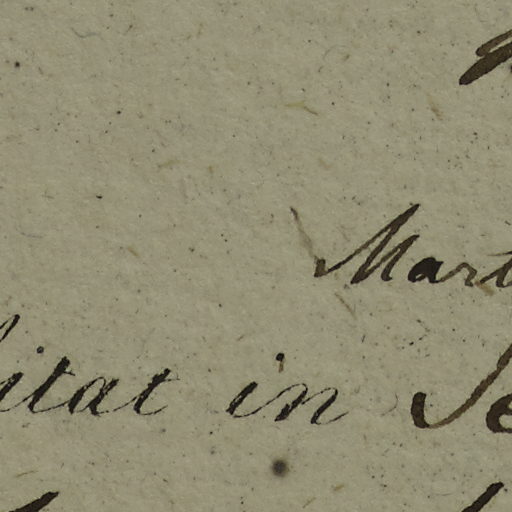 Mart
itat in Se